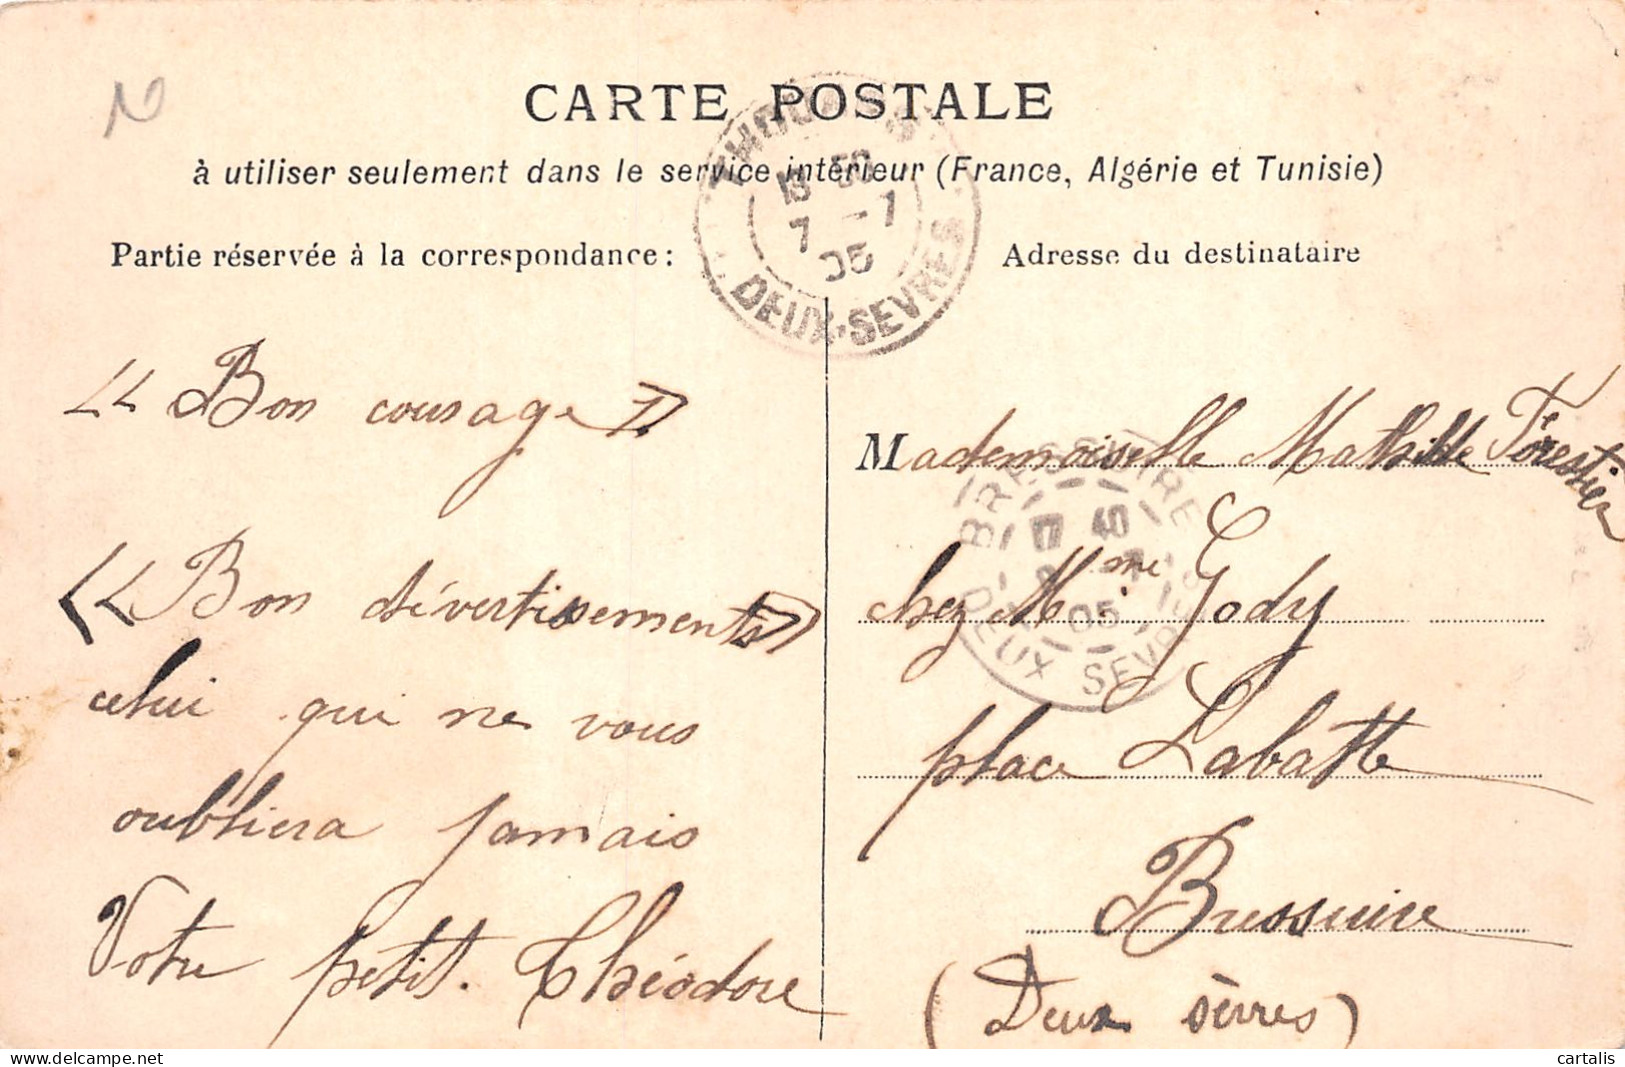 CARTE POSTALE
à utiliser seulement dans le service intérieur (France, Algérie et Tunisie)
Partie réservée à la correspondance :
Adresse du destinataire
THOUARS
13 50
7 - 7
05
DEUX-SEVRES
<< Bon courage >>
<< Bon divertissements >>
celui qui ne vous
oubliera jamais
Votre petit. Théodore
Mademoiselle Mathilde Forestier
chez Mme Gody
place Labatte
Bressuire
(Deux sèvres)
BRESSUIRE
17 40
05
DEUX SEVRES
cartalis